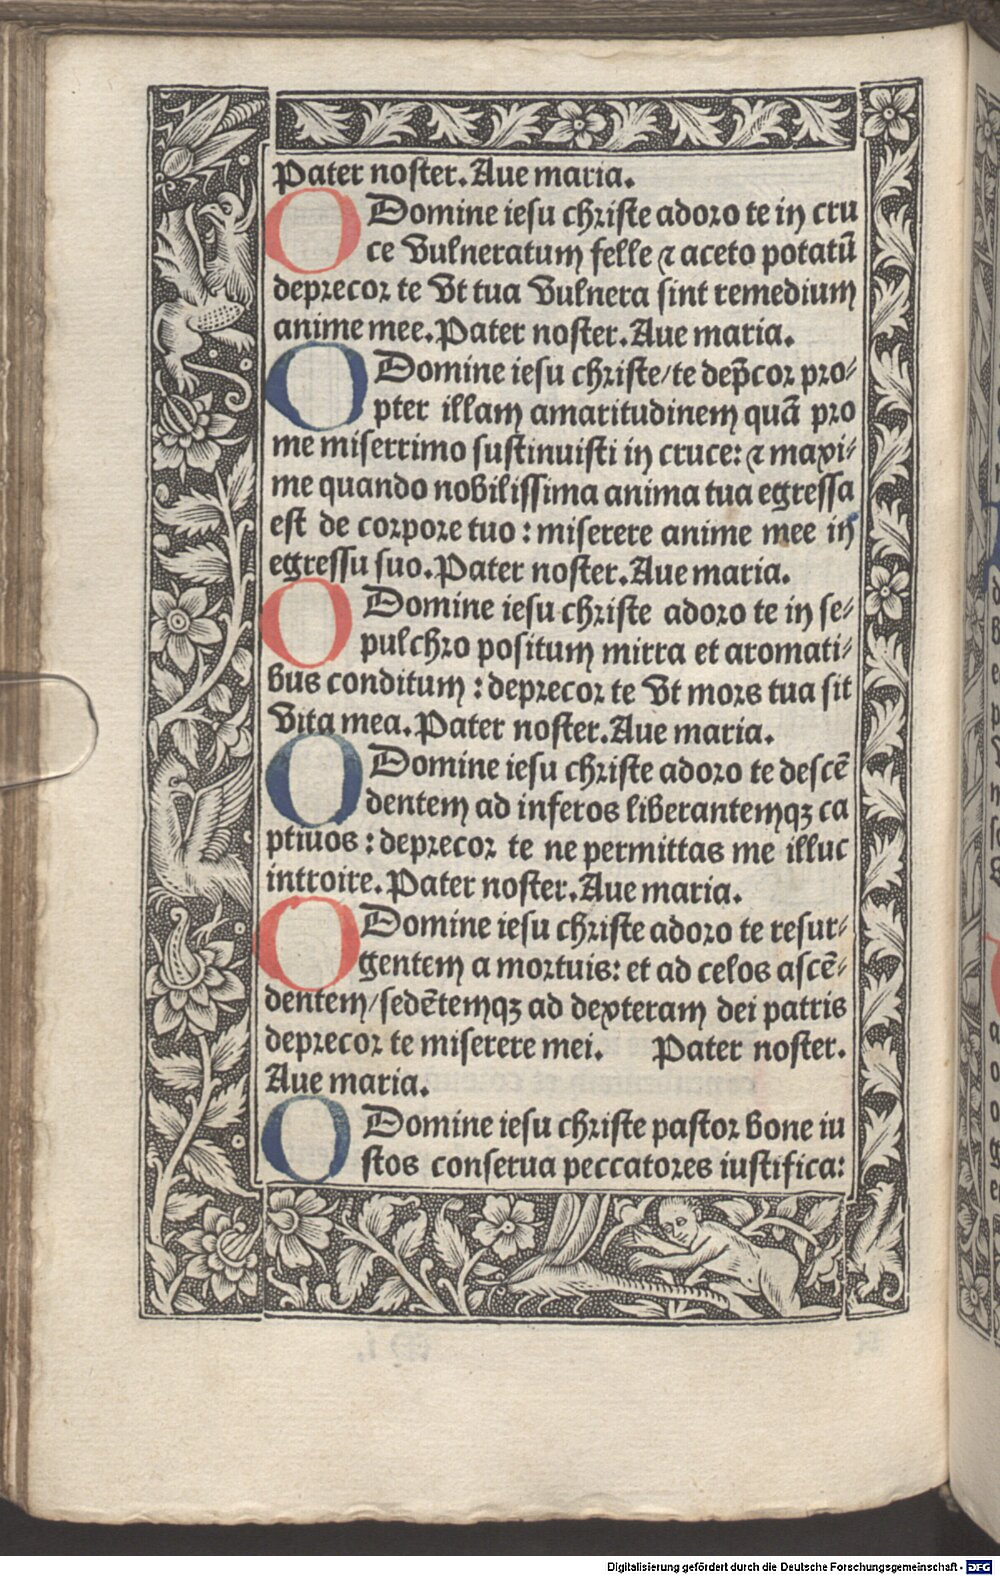 Pater noster. Aue maria.
O Domine iesu christe adoro te in cru
ce vulneratum felle ⁊ aceto potatū
deprecor te vt tua vulnera sint remedium
anime mee. Pater noster. Aue maria.
O Domine iesu christe/te dep̄cor pro⸗
pter illam amaritudinem quā pro
me miserrimo sustinuisti in cruce: ⁊ maxi⸗
me quando nobilissima anima tua egressa
est de corpore tuo: miserere anime mee in
egressu suo. Pater noster. Aue maria.
O Domine iesu christe adoro te in se⸗
pulchro positum mirra et aromati⸗
bus conditum: deprecor te vt mors tua sit
vita mea. Pater noster. Aue maria.
O Domine iesu christe adoro te descē
dentem ad inferos liberantemqꝫ ca
ptiuos: deprecor te ne permittas me illuc
introire. Pater noster. Aue maria.
O Domine iesu christe adoro te resur⸗
gentem a mortuis: et ad celos ascē⸗
dentem/sedētemqꝫ ad dexteram dei patris
deprecor te miserere mei. Pater noster.
Aue maria.
O Domine iesu christe pastor bone iu
stos conserua peccatores iustifica:
Digitalisierung gefördert durch die Deutsche Forschungsgemeinschaft - DFG